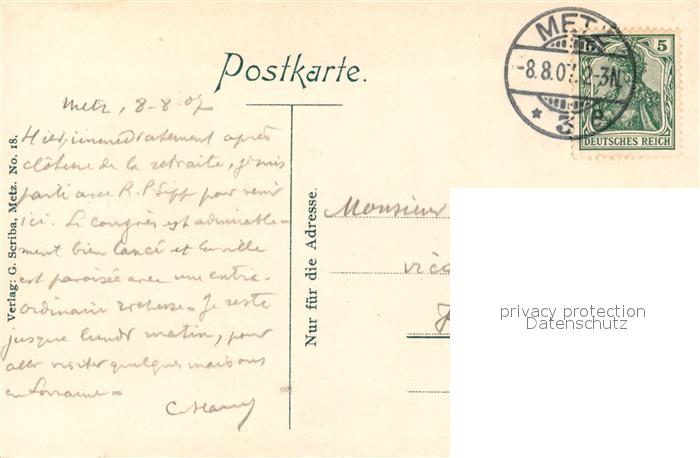 Postkarte.
METZ
-8.8.07.2-3N.
* 3 g
5
DEUTSCHES REICH
Metz, 8-8-07
Hier, immédiatement après
clôture de la retraite, je suis
parti avec R. P. Sipp pour venir
ici. Le congrès est admirable-
ment bien lancé et la ville
est pavoisée avec une extra-
ordinaire richesse = Je reste
jusque lundi matin, pour
aller visiter quelques maisons
en Lorraine =
Verlag: G. Scriba, Metz. No. 18.
Nur für die Adresse.
Monsieur
privacy protection
Datenschutz